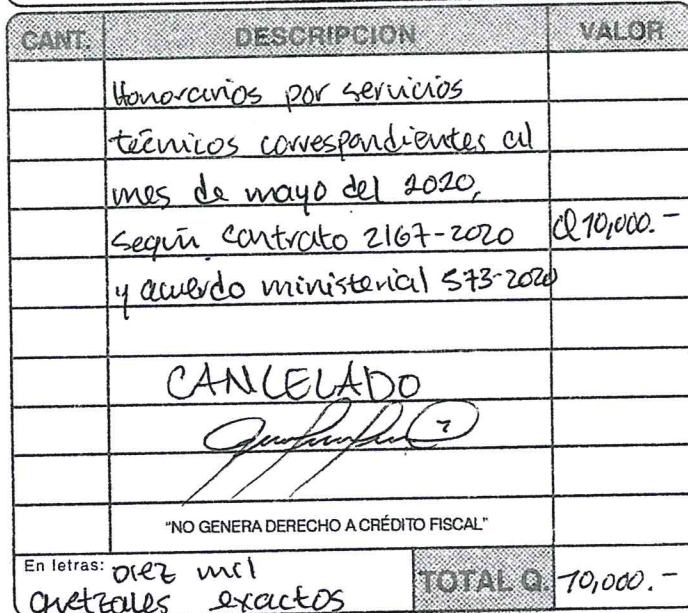 CANT. DESCRIPCION VALOR
Honorarios por servicios
técnicos correspondientes al
mes de mayo del 2020,
según contrato 2167-2020 Q 10,000.-
y acuerdo ministerial 573-2020
CANCELADO
"NO GENERA DERECHO A CRÉDITO FISCAL"
En letras: Diez mil
quetzales exactos TOTAL Q. 10,000.-